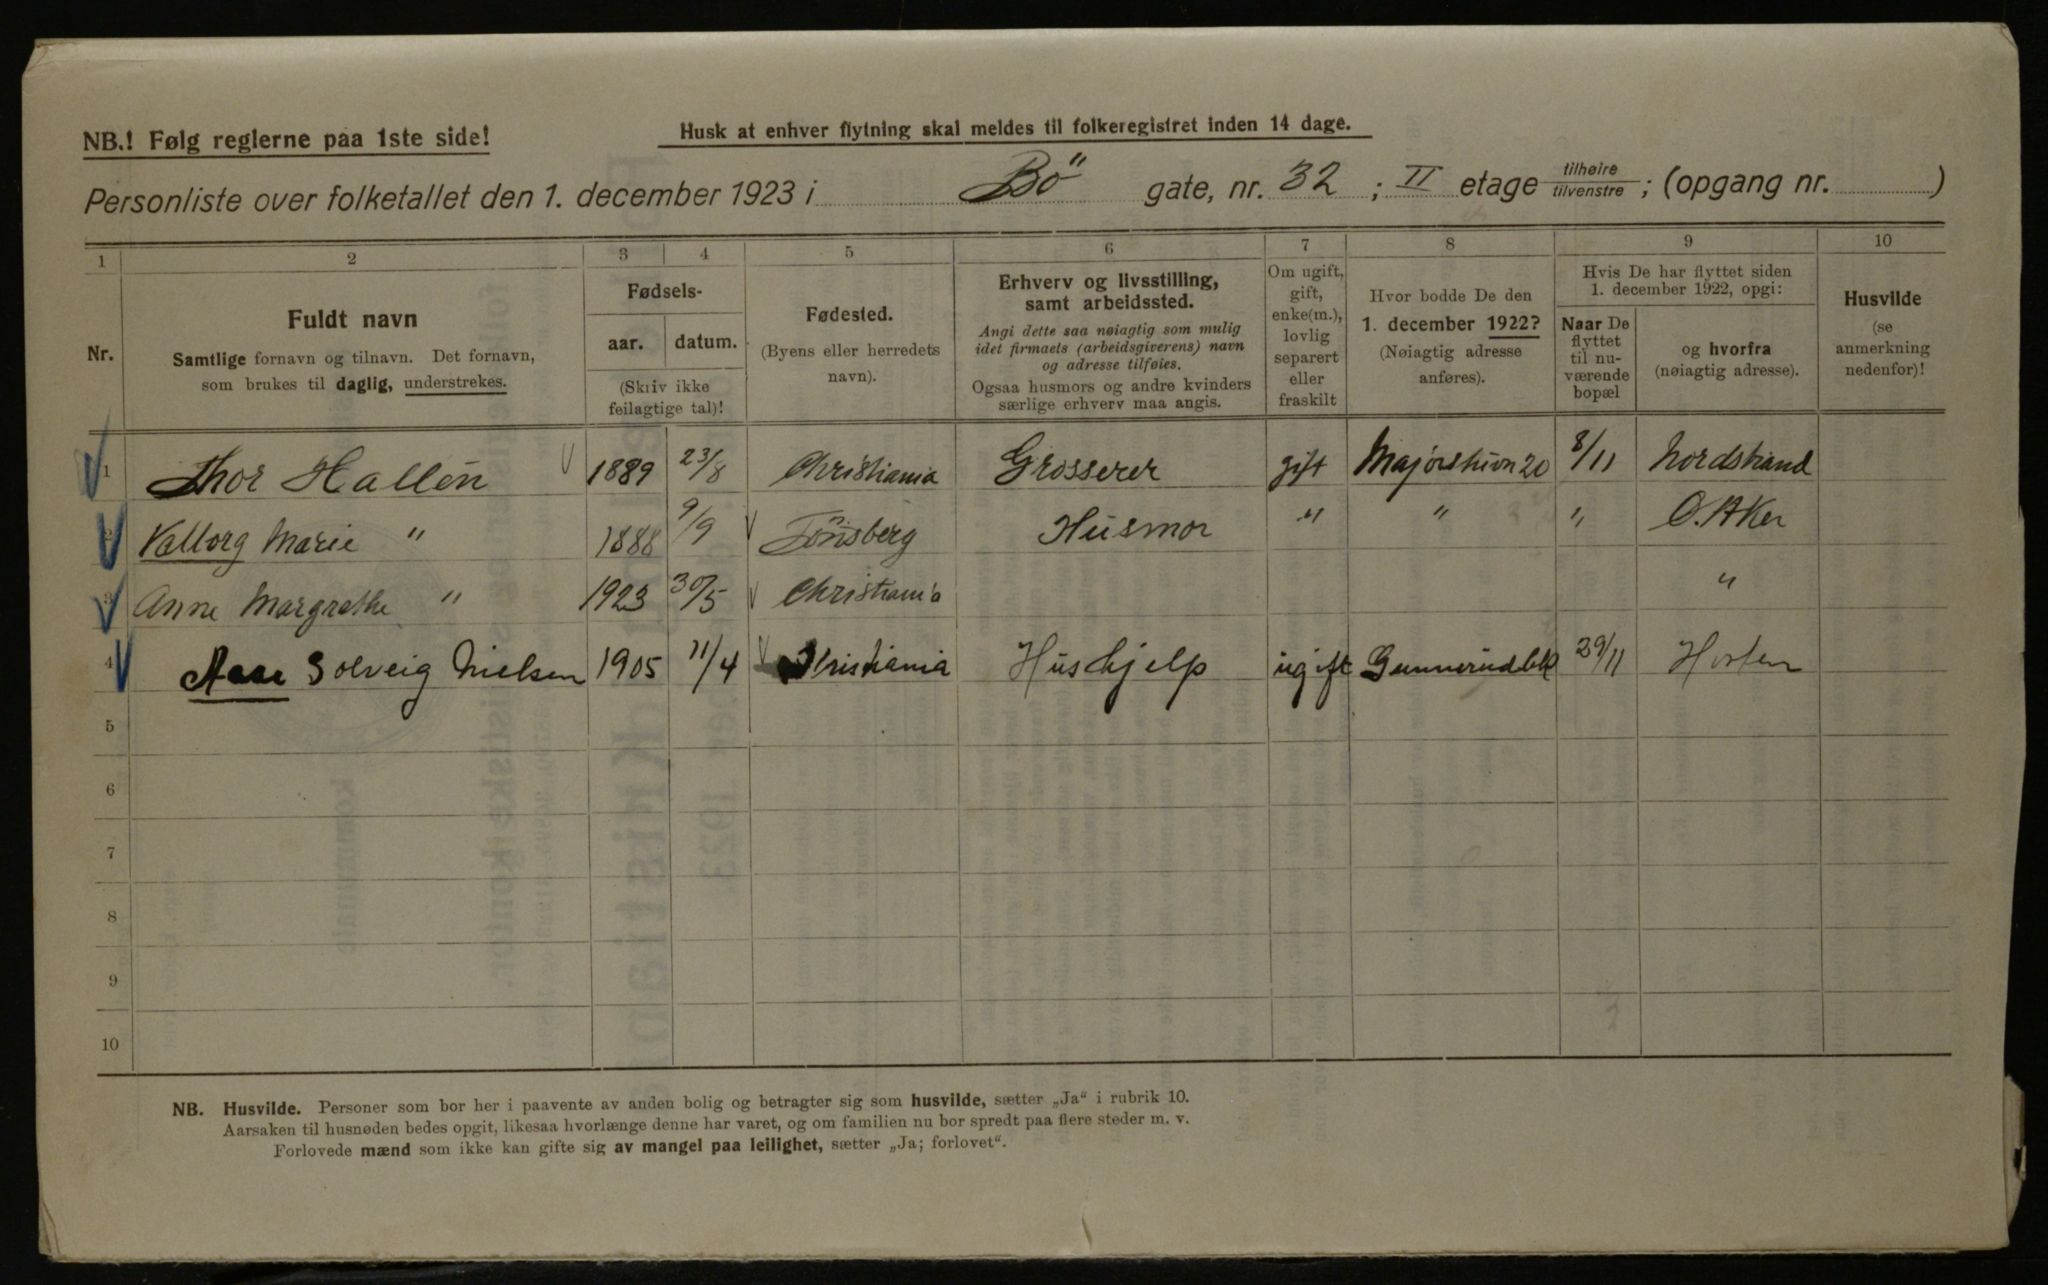 NB.! Følg reglerne paa 1ste side!
Husk at enhver flytning skal meldes til folkeregistret inden 14 dage.
Personliste over folketallet den 1. december 1923 i Bö gate, nr. 32 ; II etage tilhøire tilvenstre ; (opgang nr. )
1 2 3 4 5 6 7 8 9 10
Nr.
Fuldt navn
Samtlige fornavn og tilnavn. Det fornavn,
som brukes til daglig, understrekes.
Fødsels-
aar. datum.
(Skriv ikke
feilagtige tal)!
Fødested.
(Byens eller herredets
navn).
Erhverv og livsstilling,
samt arbeidssted.
Angi dette saa nøiagtig som mulig
idet firmaets (arbeidsgiverens) navn
og adresse tilføies.
Ogsaa husmors og andre kvinders
særlige erhverv maa angis.
Om ugift,
gift,
enke(m.),
lovlig
separert
eller
fraskilt
Hvor bodde De den
1. december 1922?
(Nøiagtig adresse
anføres).
Hvis De har flyttet siden
1. december 1922, opgi:
Naar De
flyttet
til nu-
værende
bopæl
og hvorfra
(nøiagtig adresse).
Husvilde
(se
anmerkning
nedenfor)!
1 Thor Hallén 1889 23/8 Christiania Grosserer gift Majorstuvn 20 8/11 Nordstrand
2 Valborg Marie " 1888 9/9 Tönsberg Husmor " " " Ö. Aker
3 Anne Margrethe " 1923 30/5 Christiania "
4 Solveig Nielsen 1905 11/4 Kristiania Hushjelp ugift 29/11 Horten
5
6
7
8
9
10
NB. Husvilde. Personer som bor her i paavente av anden bolig og betragter sig som husvilde, sætter „Ja" i rubrik 10.
Aarsaken til husnøden bedes opgit, likesaa hvorlænge denne har varet, og om familien nu bor spredt paa flere steder m. v.
Forlovede mænd som ikke kan gifte sig av mangel paa leilighet, sætter „Ja; forlovet".